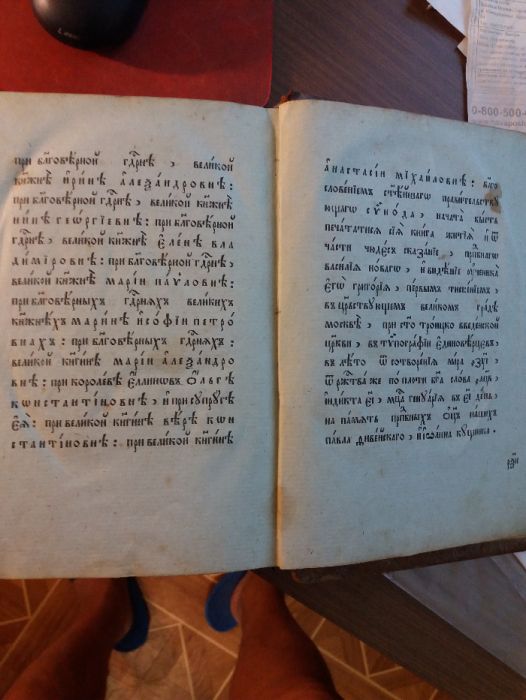 при бл҃говѣ́рной гд҃рнѣ, вели́кой
кн҃жнѣ ири́нѣ алеѯа́ндровнѣ:
при бл҃говѣ́рной гд҃рнѣ, вели́кой кн҃жнѣ
ни́нѣ гео́ргіевнѣ: при бл҃говѣ́рной
гд҃рнѣ, вели́кой кн҃жнѣ еле́нѣ вла
ди́мировнѣ: при бл҃говѣ́рной гд҃рнѣ,
вели́кой кн҃жнѣ марі́и па́ѵловнѣ:
при бл҃говѣ́рныхъ гд҃рняхъ вели́кихъ
кн҃жнѣхъ мари́нѣ и софі́и петро́
внахъ: при бл҃говѣ́рныхъ гд҃рняхъ:
вели́кой кн҃ги́нѣ марі́и алеѯа́ндро
внѣ: при короле́вѣ е́ллиновъ о́льгѣ
кѡнстанті́новнѣ, и при супру́гѣ
еѧ̀: при вели́кой кн҃ги́нѣ вѣ́рѣ кѡн
станті́новнѣ: при вели́кой кн҃ги́нѣ
анастасі́и міха́иловнѣ: бл҃го
слове́ніемъ ст҃ѣ́йшагѡ прави́тельству
ющагѡ сѵно́да, нача́та бы́сть
печа́татисѧ сі́ѧ кни́га житіѧ̀ и ѿ
ча́сти чуде́съ сказа́ніе, прп҃бнагѡ
васи́лія но́вагѡ, и видѣ́ніе ученика̀
егѡ̀ григо́рія, пе́рвымъ тисне́ніемъ,
въ ца́рствующемъ вели́комъ гра́дѣ
москвѣ̀, при ст҃о тро́ицко введе́нской
цр҃кви, въ тѵпогра́фіи единовѣ́рцевъ,
въ лѣ́то ѿ сотворе́нія мі́ра
ѿ рж҃ства́ же по пло́ти бг҃а сло́ва
инді́кта мц҃а генуа́рія въ день,
на па́мять прп҃бныхъ оц҃ъ на́шихъ
па́вла ѳиве́йскаго, и іоа́нна кущника.
0-800-500-